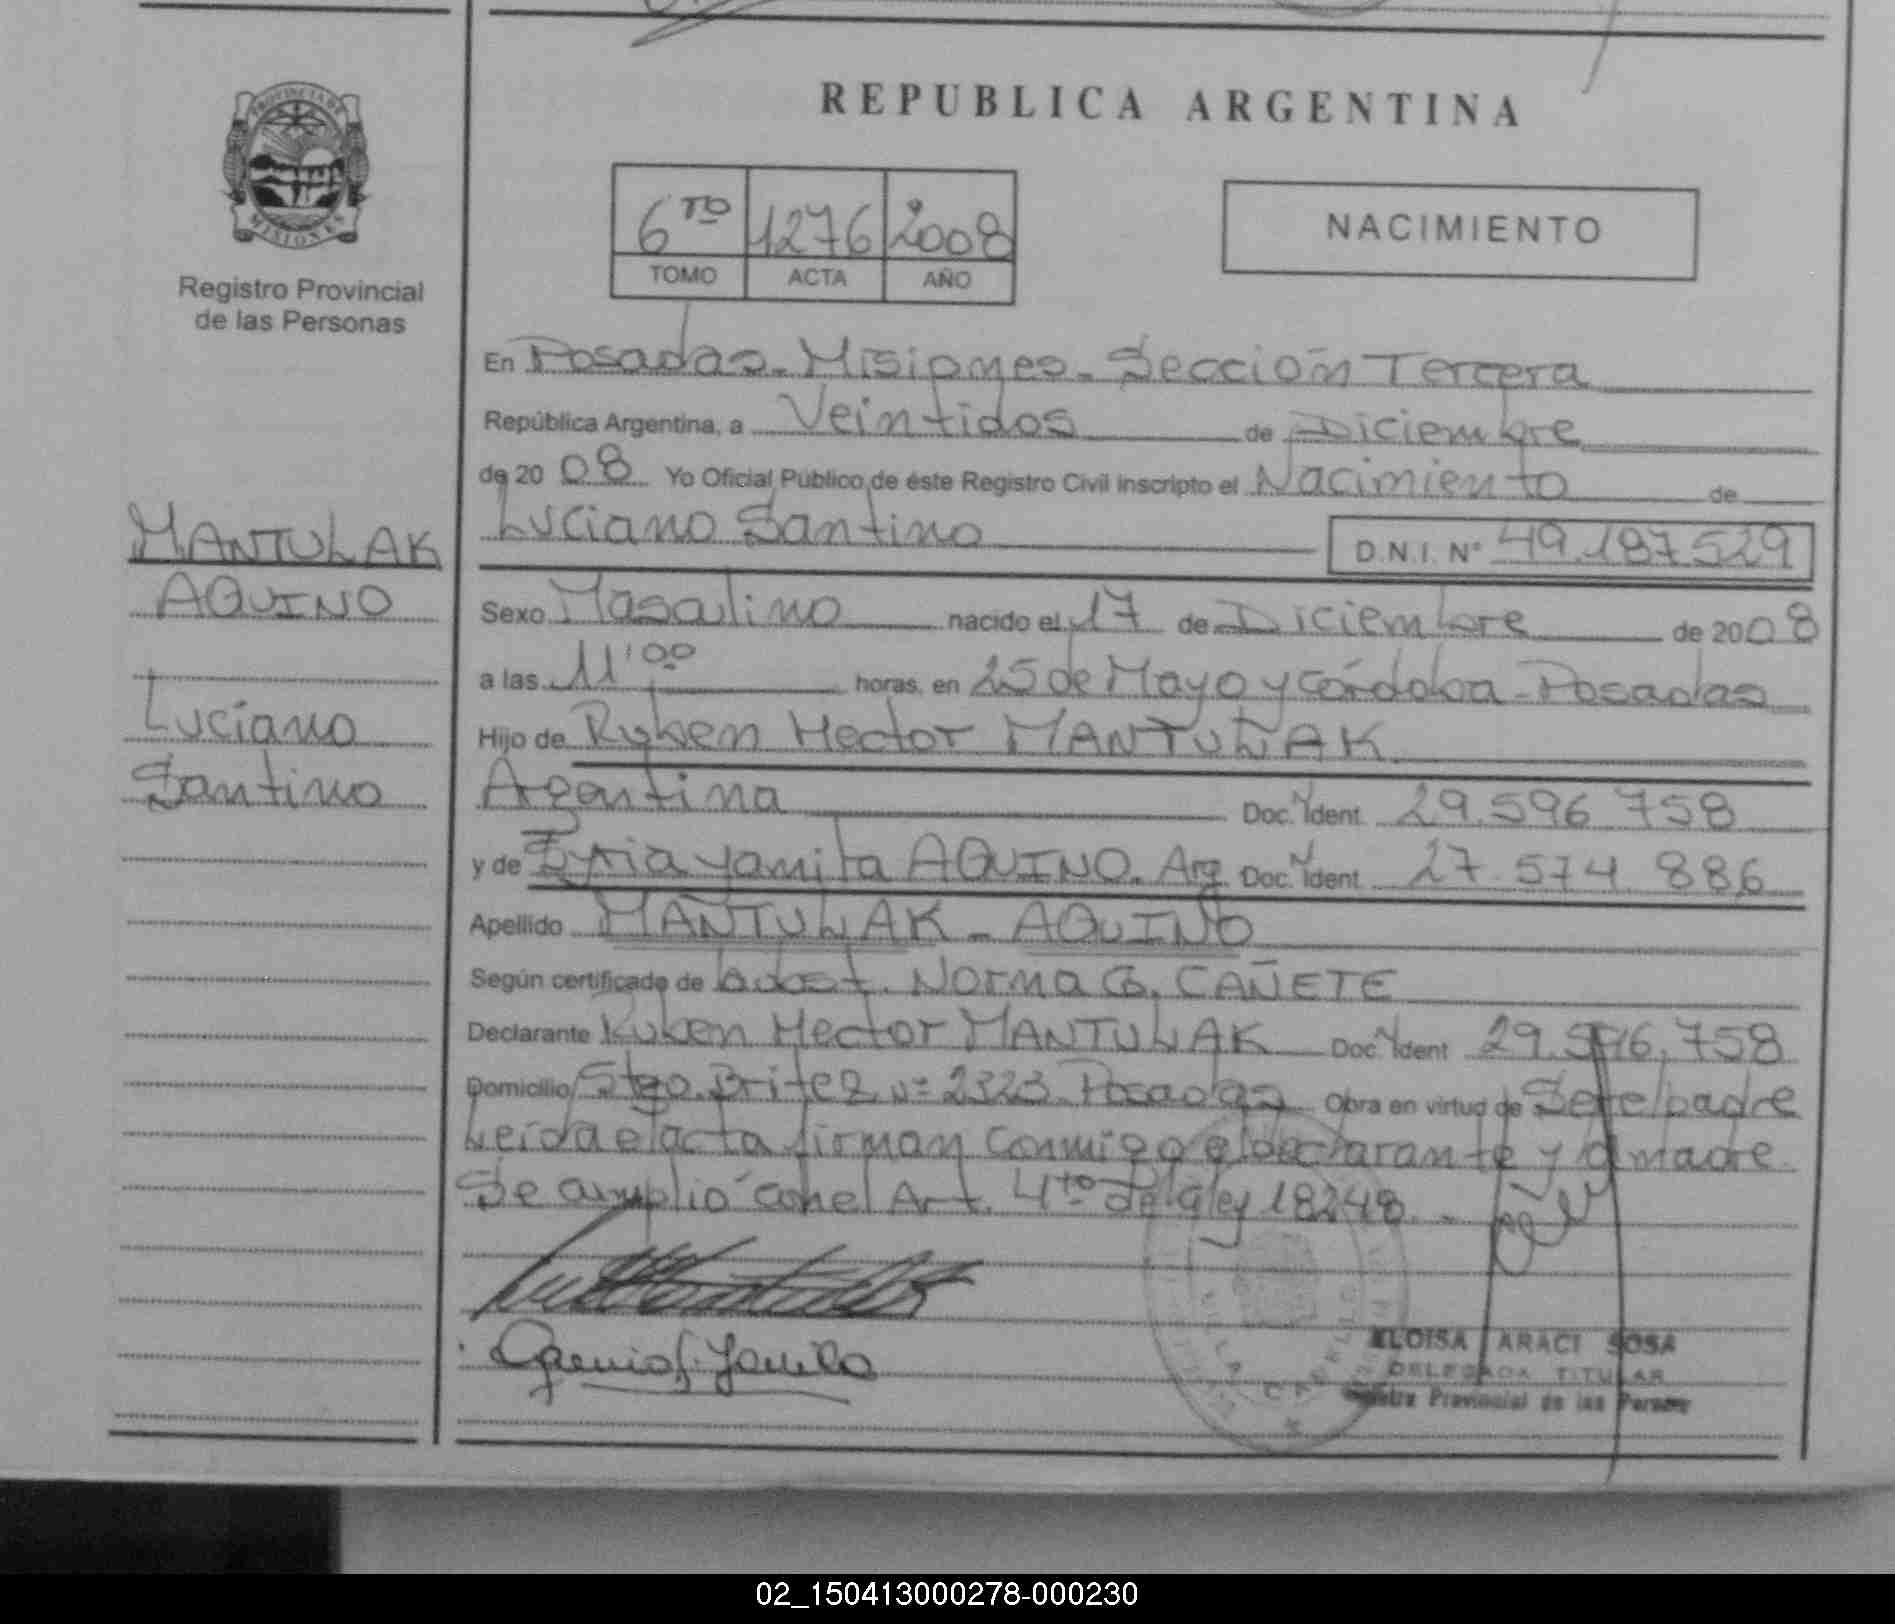 REPUBLICA ARGENTINA
PROVINCIA DE
MISIONES
Registro Provincial
de las Personas
6to 1276 2008
TOMO ACTA AÑO
NACIMIENTO
En Posadas - Misiones - Sección Tercera
República Argentina, a Veintidos de Diciembre
de 2008 Yo Oficial Público de éste Registro Civil inscripto el Nacimiento de
Luciano Santino D.N.I. Nº 49.187529
MANTULAK
AQUINO
Luciano
Santino
Sexo Masculino nacido el 17 de Diciembre de 2008
a las 11'00 horas, en 25 de Mayo y Córdoba - Posadas
Hijo de Ruben Hector MANTULAK
Argentina Doc. Ident. 29.596 758
y de Yamila AQUINO. Arg. Doc. Ident. 27.574 886
Apellido MANTULAK - AQUINO
Según certificado de obst. Norma G. CAÑETE
Declarante Ruben Hector MANTULAK Doc. Ident 29.596.758
Domicilio Stgo. Britez Nº 2323 Posadas Obra en virtud de Ser el padre
Leída el acta firman conmigo el declarante y la madre.
Se amplió con el Art. 4to de la ley 18248. -
ELOISA ARACI SOSA
DELEGADA TITULAR
Registro Provincial de las Personas
02_150413000278-000230